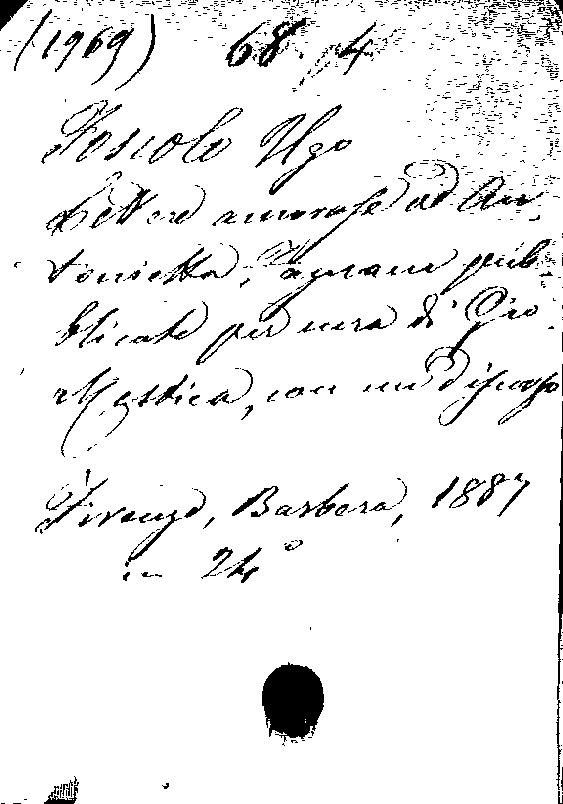 (1969) 68. 4
Foscolo Ugo
Lettere amorose ad An-
tonietta Fagnani pub-
blicate per cura di Gio.
Mestica, con un discorso
Firenze, Barbera, 1887
in 24°